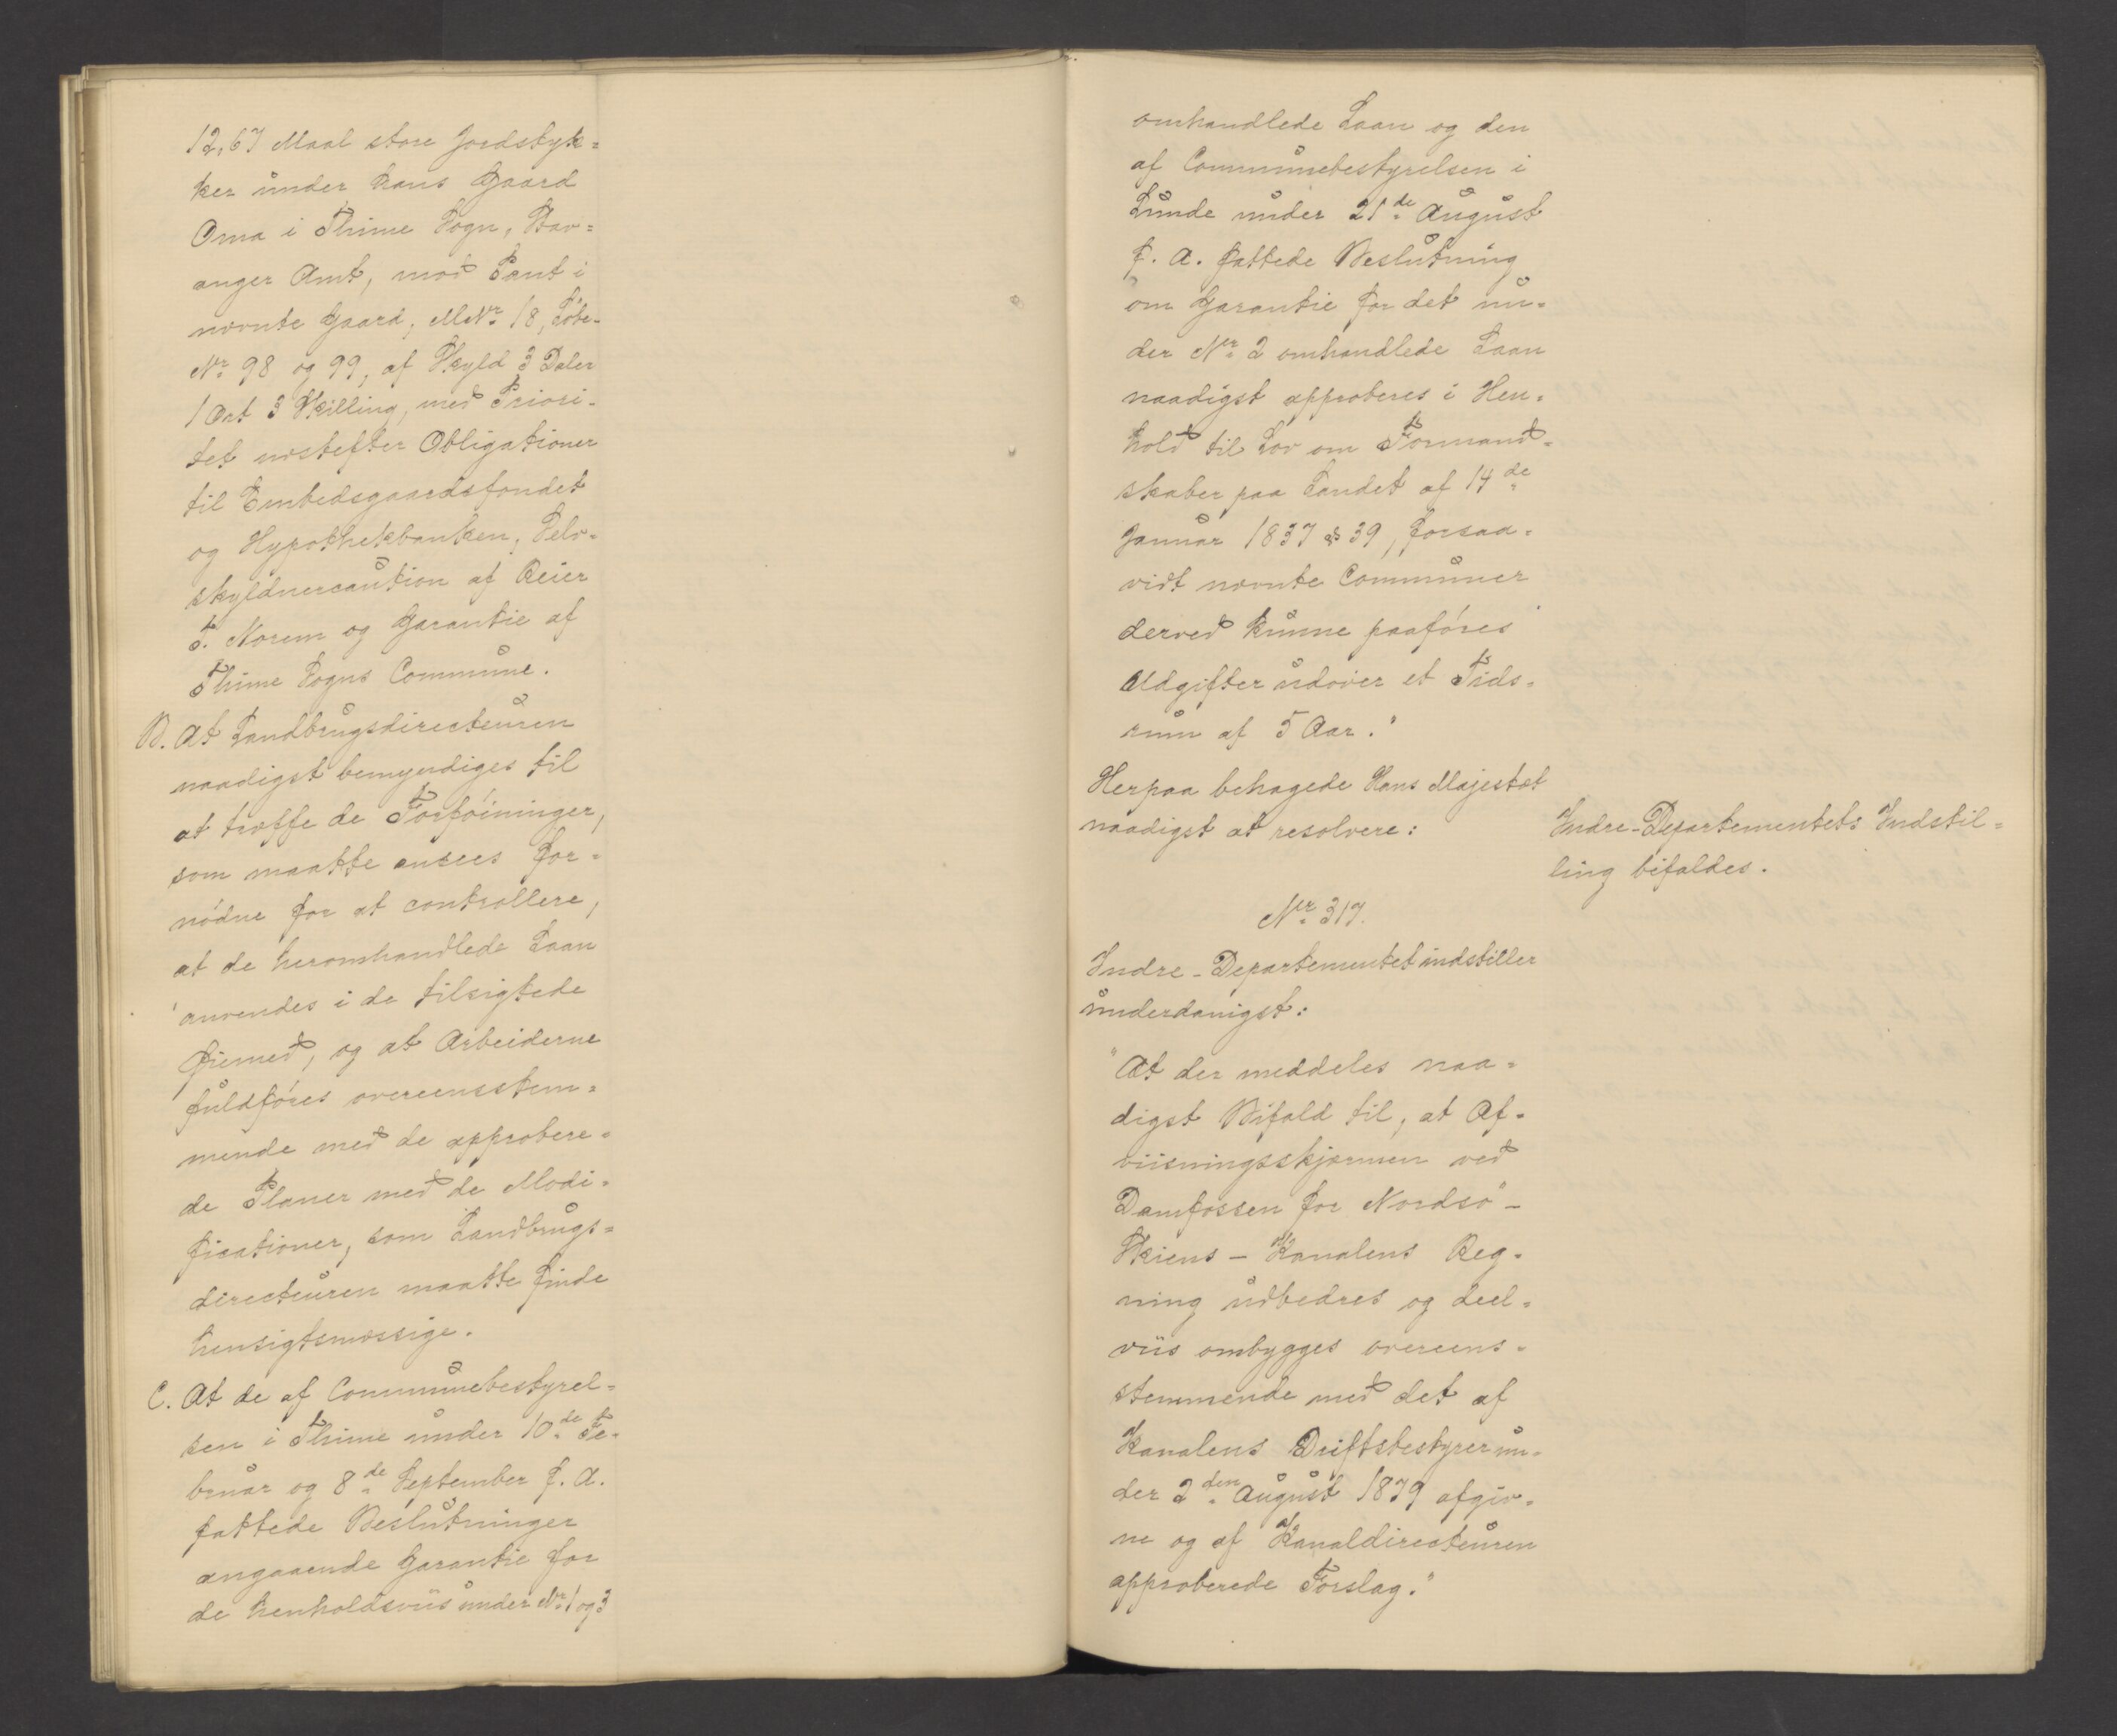 12,67 Maal store Jordstyk=
ker under hans Gaard
Oma i Thime Sogn, Stav=
anger Amt, mod Pant i
nævnte Gaard, M.Nr. 18, Løbe-
Nr. 98 og 99, af Skyld 3 Daler
1 Ort 3 Skilling, med Priori-
tet næstefter Obligationer
til Embedsgaardsfondet
og Hypothekbanken, Selv-
skyldnercaution af Reier
T. Norem og Garantie af
Thime Sogns Commune.
B. At Landbrugsdirecteuren
naadigst bemyndiges til
at træffe de Forføininger,
som maatte ansees for=
nødne for at controllere,
at de heromhandlede Laan
anvendes i de tilsigtede
Øiemed, og at Arbeiderne
fuldføres overeensstem=
mende med de approbere=
de Planer med de Modi=
ficationer, som Landbrugs=
directeuren maatte finde
hensigtsmæssige.
C. At de af Communebestyrel=
sen i Thime under 10de Fe-
bruar og 8de September f. A.
fattede Beslutninger
angaaende Garantie for
de henholdsviis under Nr. 1 og 3
omhandlede Laan og den
af Communebestyrelsen i
Lunde under 21de August
f. A. fattede Beslutning
om Garantie for det un=
der Nr. 2 omhandlede Laan
naadigst approberes i Hen=
hold til Lov om Formand=
skaber paa Landet af 14de
Januar 1837 § 39, forsaa=
vidt nævnte Communer
derved kunne paaføres
Udgifter udover et Tids=
rum af 5 Aar."
Herpaa behagede Hans Majestæt
naadigst at resolvere:
Indre-Departementets Indstil=
ling bifaldes.
Nr. 317.
Indre-Departementet indstiller
underdanigst:
"At der meddeles naa=
digst Bifald til, at Af=
viisningsskjærmen ved
Damfossen for Nordsø-
Skiens-Kanalens Reg=
ning udbedres og deel=
viis ombygges overeens=
stemmende med det af
Kanalens Driftsbestyrer un=
der 2den August 1879 afgiv=
ne og af Kanaldirecteuren
approberede Forslag."